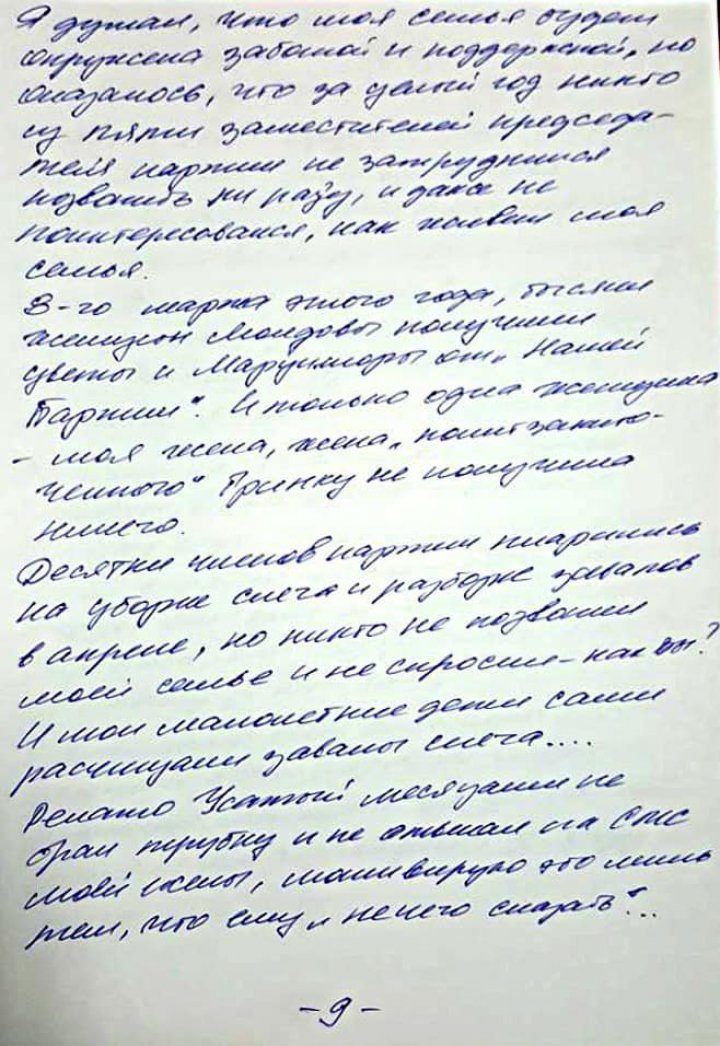 Я думал, что моя семья будет
окружена заботой и поддержкой, но
оказалось, что за целый год никто
из пяти заместителей председа-
теля партии не затруднился
позвонить ни разу, и даже не
поинтересовался, как живет моя
семья.
8-го марта этого года, тысячи
женщин Молдовы получили
цветы и Марцишоры от „Нашей
Партии". И только одна женщина
- моя жена, жена „политзаклю-
ченного" Гринку не получила
ничего.
Десятки членов партии пиарились
на уборке снега и разборке завалов
в апреле, но никто не позвонил
моей семье и не спросил - как вы?
И мои малолетние дети сами
расчищали завалы снега....
Ренато Усатый месяцами не
брал трубку и не отвечал на СМС
моей жены, мотивируя это лишь
тем, что ему „нечего сказать"...
-9-